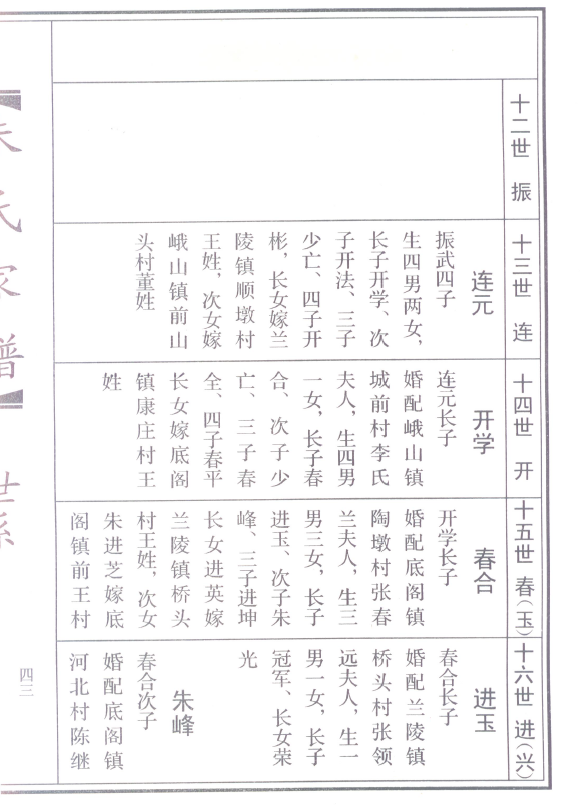 十二世 振
十三世 连
连元
振武四子
生四男两女，
长子开学、次
子开法、三子
少亡、四子开
彬，长女嫁兰
陵镇顺墩村
王姓，次女嫁
峨山镇前山
头村董姓
十四世 开
开学
连元长子
婚配峨山镇
城前村李氏
夫人，生四男
一女，长子春
合、次子少
亡、三子春
全、四子春平
长女嫁底阁
镇康庄村王
姓
十五世 春（玉）
春合
开学长子
婚配底阁镇
陶墩村张春
兰夫人，生三
男三女，长子
进玉、次子朱
峰、三子进坤
长女进英嫁
兰陵镇桥头
村王姓，次女
朱进芝嫁底
阁镇前王村
十六世 进（兴）
进玉
春合长子
婚配兰陵镇
桥头村张领
远夫人，生一
男一女，长子
冠军、长女荣
光
朱峰
春合次子
婚配底阁镇
河北村陈继
朱氏家谱
世系
四三